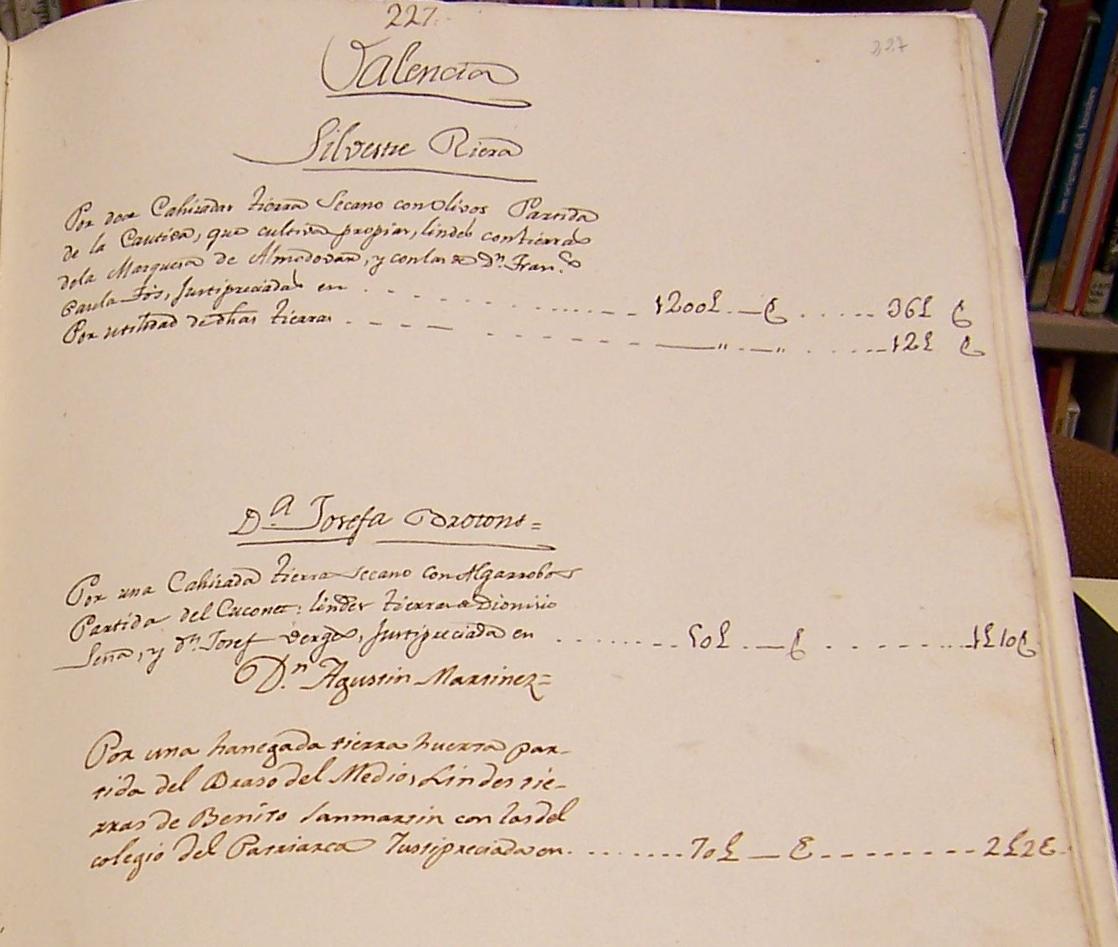 227.
327
Valencia
Silvestre Riera
Por doce Cahizadas tierra Secano con olivos Partida
de la Cautiva, que cultiva propias, lindes con tierras
dela Marquesa de Almodovar, y con las de Dn. Franco.
Paula Fos, Justipreciadas en 1200£ — S 36£ S
Por utilidad de dhas tierras — " — " 12£ S
Da. Josefa Brotons =
Por una Cahizada tierra secano con Algarrobos
Partida del Cuconet: lindes tierras de Dionisio
y dn. Josef Verges, Justipreciada en 50£ — S 1£10S
Dn. Agustin Martinez =
Por una hanegada tierra huerta par-
tida del Braso del Medio, Lindes tie-
rras de Benito Sanmartin con las del
colegio del Patriarca Justipreciada en 70£ — S 2£2S